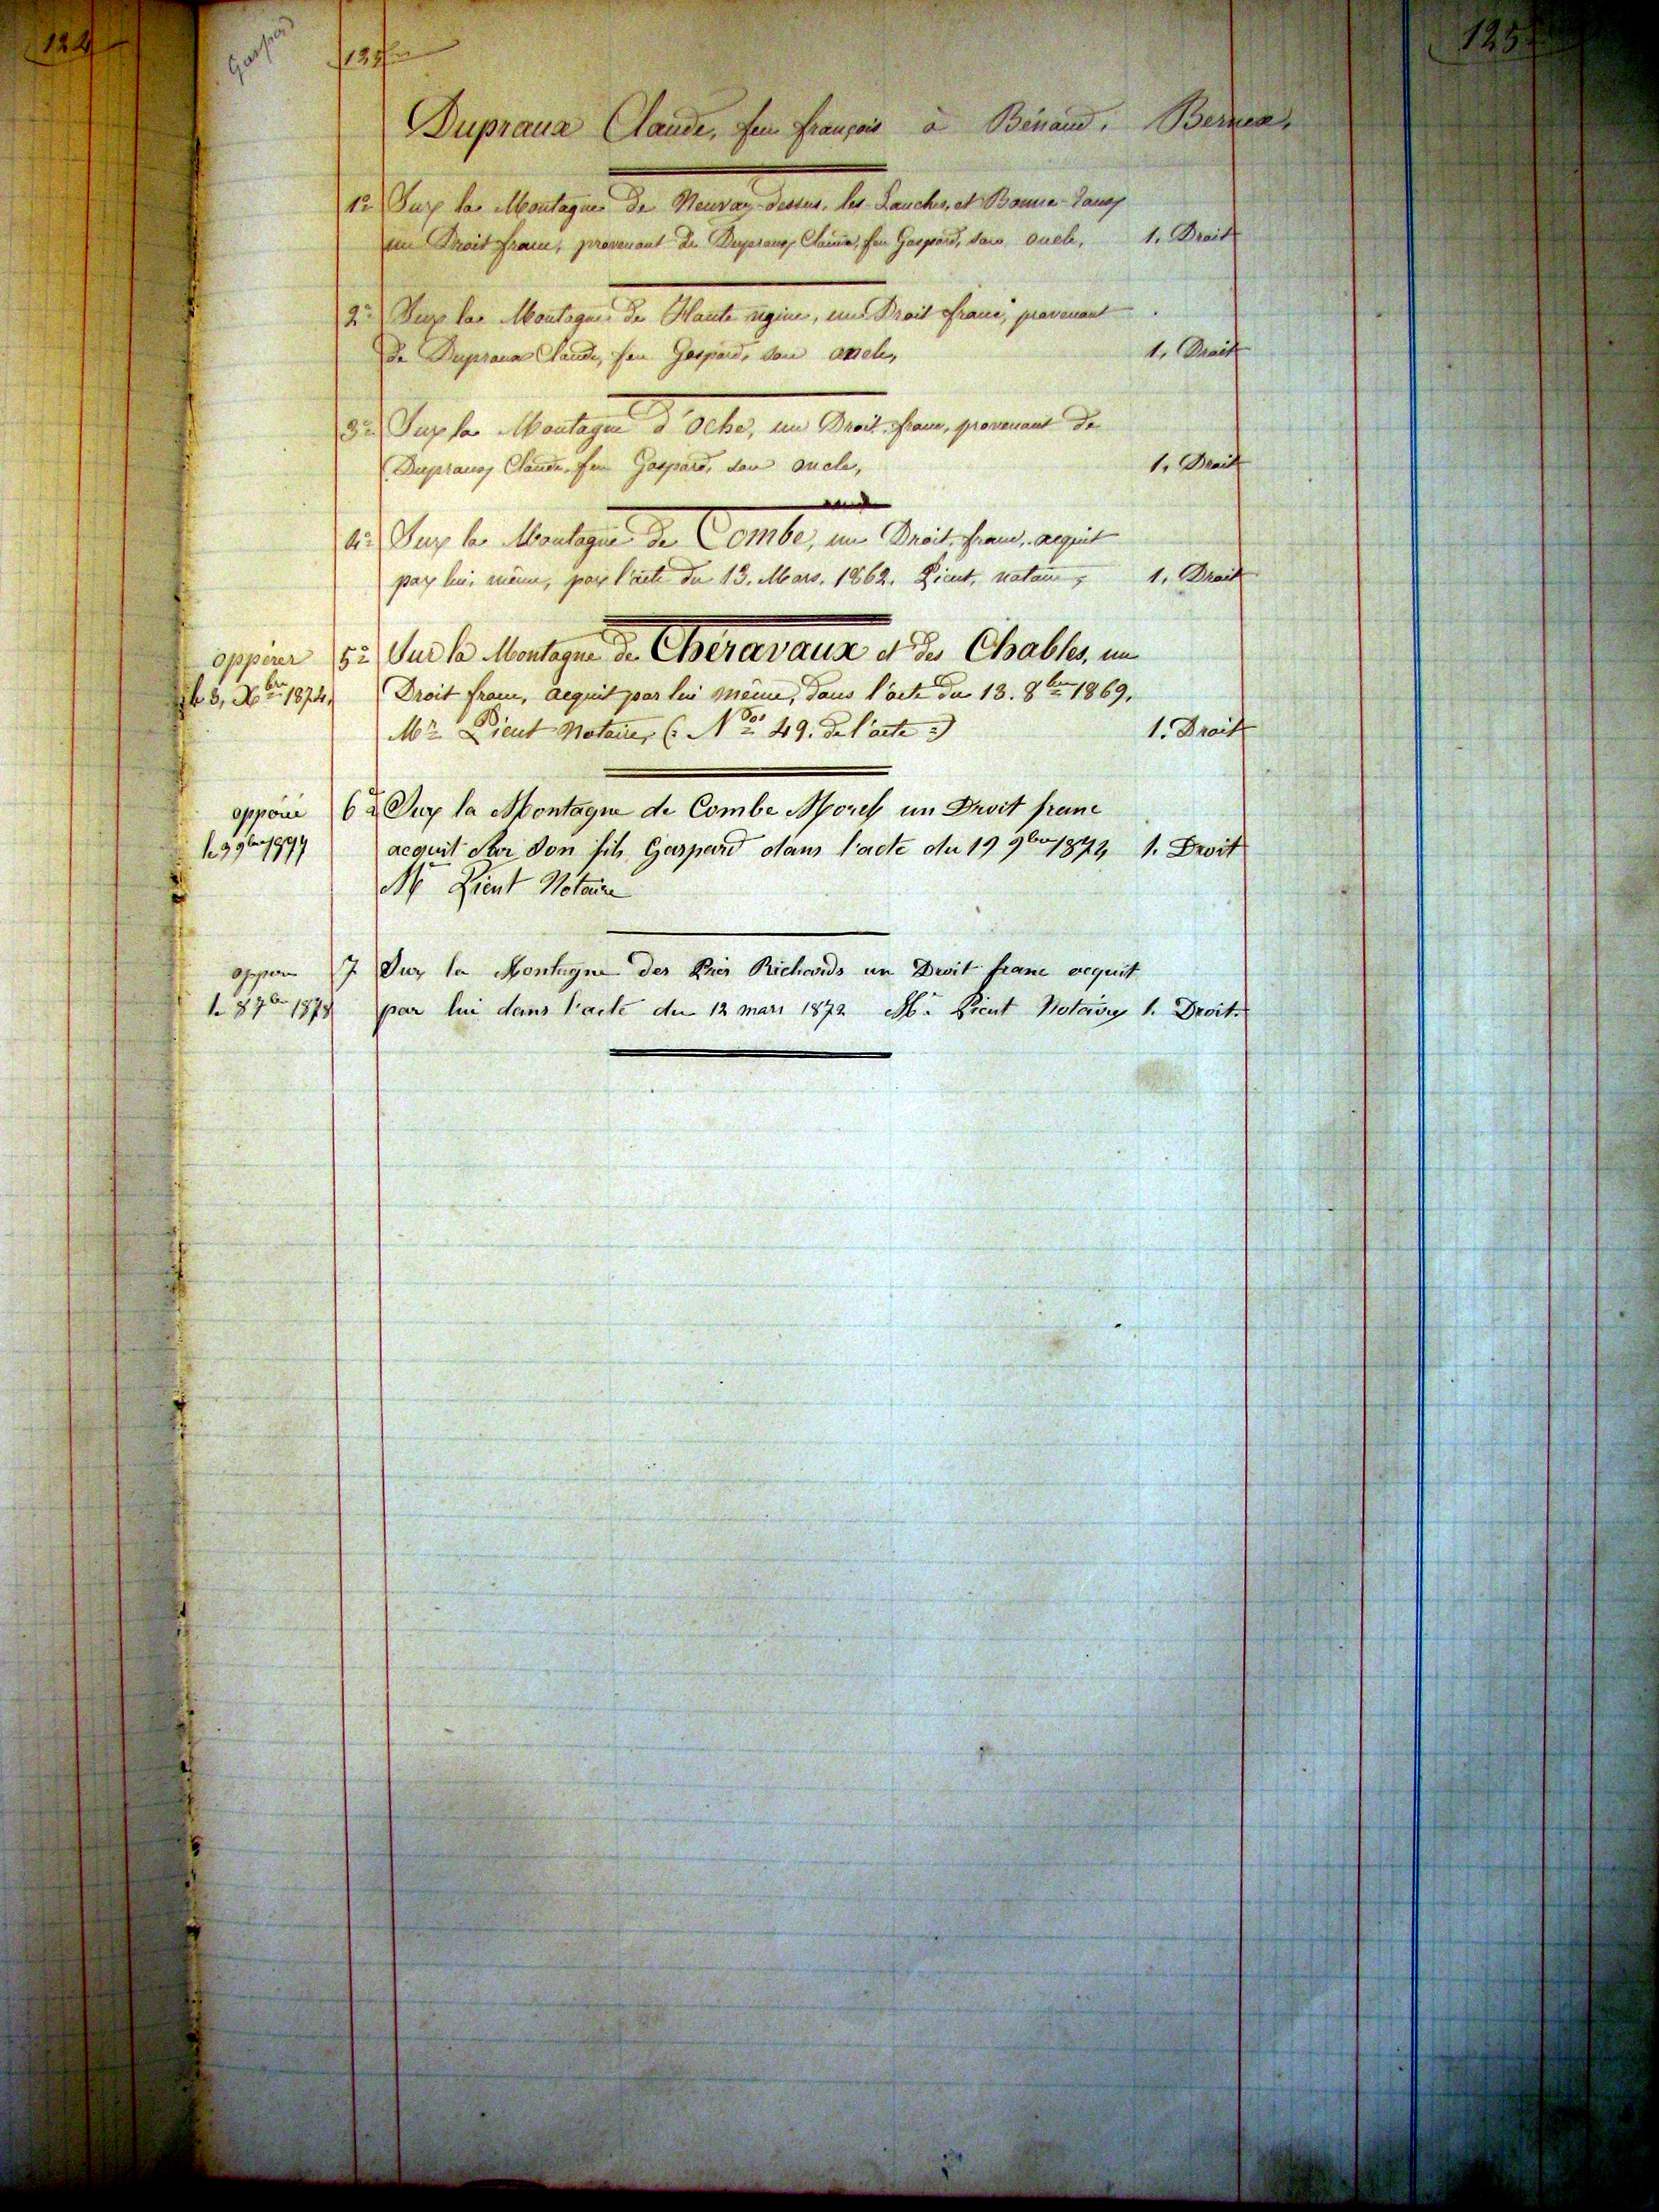 124
Gaspard
125
125
Dupraux Claude, feu françois à Bénand. Bernex,
1º Sur la Montagne de Neuvaz-dessus, les Lauches, et Bonne-Vaux
un Droit franc, provenant de Dupraux Claude, feu Gaspard, son oncle, 1. Droit
2º Sur la Montagne de Haute ugine, un Droit franc, provenant
de Dupraux Claude, feu Gaspard, son oncle, 1, Droit
3º Sur la Montagne d'Oche, un Droit franc, provenant de
Dupraux Claude, feu Gaspard, son oncle, 1, Droit
4º Sur la Montagne de Combe, un Droit, franc, acquit
par lui, même, par l'acte du 13. Mars. 1862. Pient, notaire, 1, Droit
oppérer 5º Sur la Montagne de Cheravaux et des Chables, un
le 3, Xbre 1874, Droit franc, acquit par lui même, dans l'acte du 13. 8bre 1869,
Mre Pient Notaire, (: Nº 49. de l'acte :) 1. Droit
6º Sur la Montagne de Combe Morel un Droit franc
acquit par son fils Gaspard dans l'acte du 19 9bre 1872 1. Droit
Me Pient Notaire
7 Sur la Montagne des Prés Richards un Droit franc acquit
le 8 7bre 1878 par lui dans l'acte du 12 mars 1872 Me Pient Notaire 1. Droit.